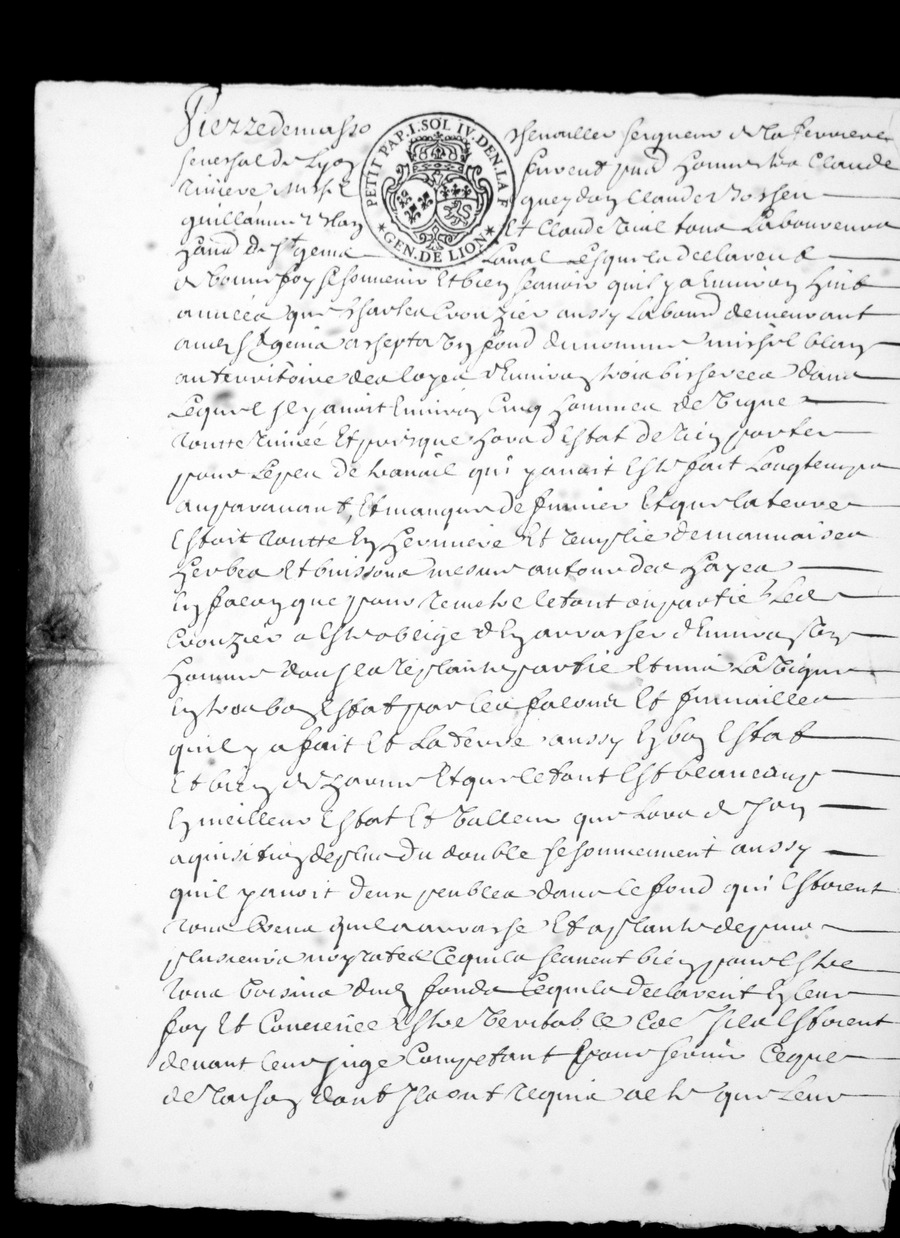 PETIT PAP. I. SOL IV. DEN. LA F
GEN. DE LION
Pierre de masso seigneur de la ferriere
seneschal de Lyon furent Claude
guillaume Et Claude tous Laboureurs
Lesquels declarent
de bonne foy se souvenir Et bien scavoir quil y a Environ huit
années que Charles Crouzier aussy Labour demeurant
aud St genis achepta un fond du nomme michel blanc
au territoire des d'Environ trois bicherees dans
Lequel il y avoit Environ Cinq hommes de vigne
toutte ruinée Et presque hors d'Estat de rien porter
pour Le peu de travail qui y avoit Esté fait Longtemps
auparavant, Et manque de fumier Et que la terre
Estoit toutte En Et remplie de mauvaises
herbes Et buissons mesme autour des hayes
En facon que pour remettre le tout en partie Led
Crouzier a Esté obligé d'En arracher d'Environ un
homme dont il a replanté partie Et mis La vigne
En tres bon Estat par les facons Et fumailles
quil y a fait Et La terre aussy En bon Estat
Et bien Et que le tout Est beaucoup
En meilleur Estat Et valleur que Lors de son
aquisition de plus du double se souviennent aussy
quil y avoit deux peubles dans le fond qui Estoient
tous quil a arraché Et a planté depuis
plusieurs Ce quils scavent bien pour Estre
tous voisins dud fonds Ce quils declarent En leur
foy Et Concience Estre veritable Co'e s'ils Estoient
devant leur juge Competant pour servir Ce que
de raison dont Ils ont requis acte que Leur